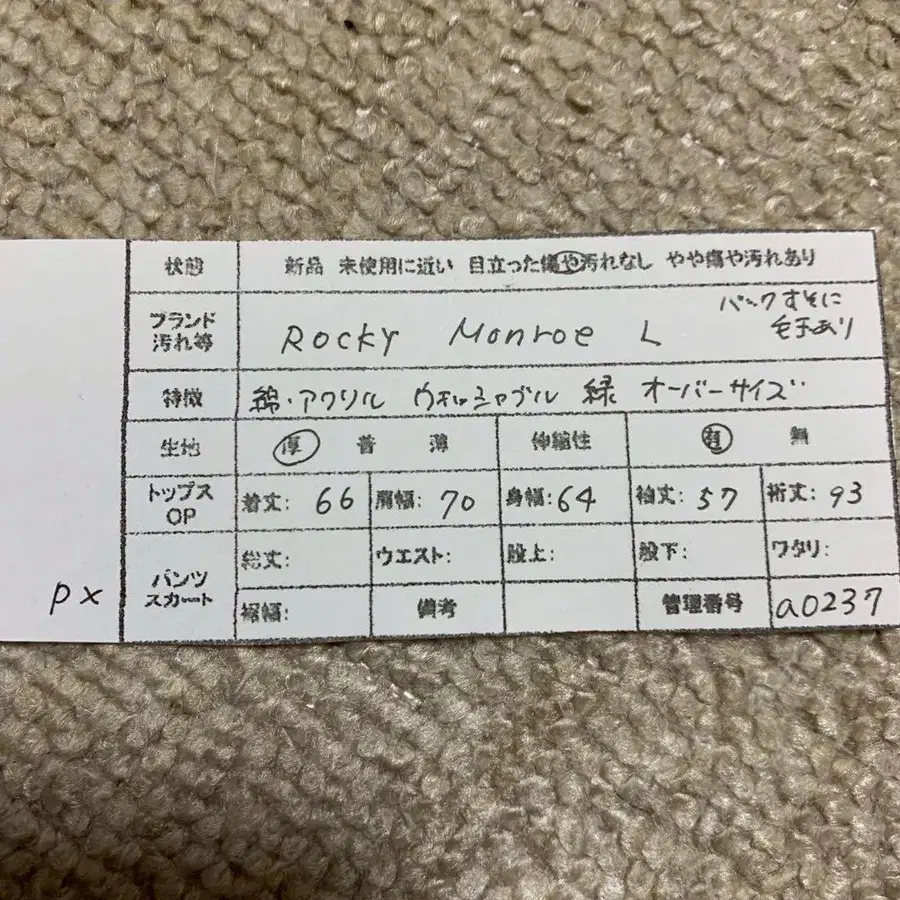 状態 新品 未使用に近い 目立った傷や汚れなし やや傷や汚れあり
ブランド 汚れ等 Rocky Monroe L バックすそに
毛玉あり
特徴 綿・アクリル ウォッシャブル 緑 オーバーサイズ
生地 厚 普 薄 伸縮性 有 無
トップス OP 着丈: 66 肩幅: 70 身幅: 64 袖丈: 57 裄丈: 93
パンツ スカート 総丈: ウエスト: 股上: 股下: ワタリ:
px 裾幅: 備考 管理番号 a0237